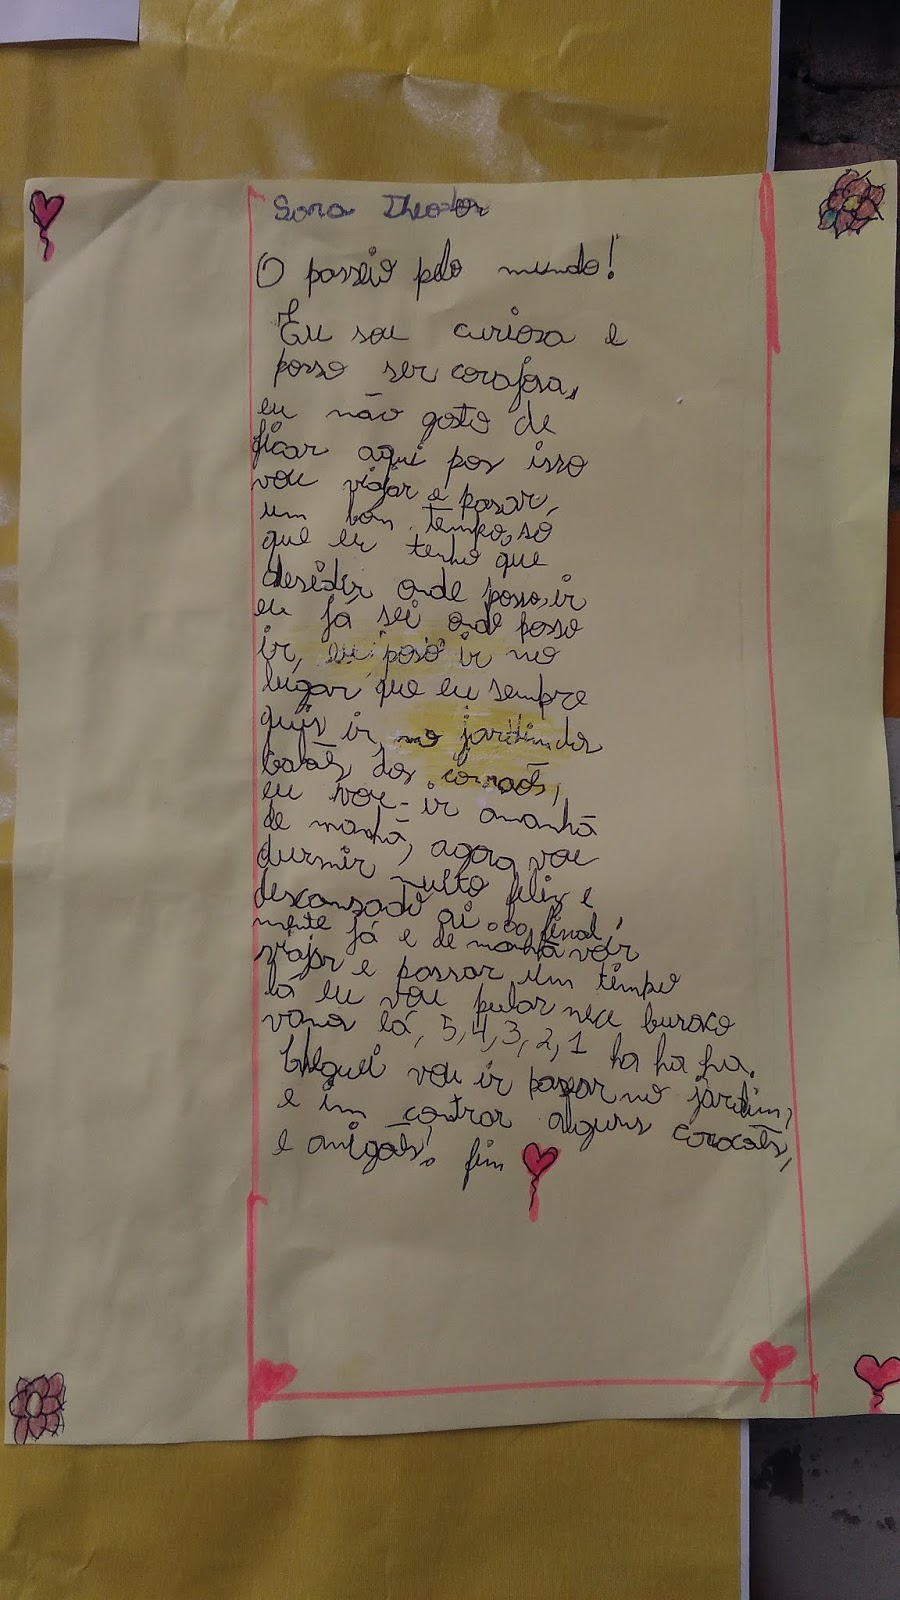 Sara Theodor
O passeio pelo mundo!
Eu sou curiosa e
posso ser corajosa,
eu não goto de
ficar aqui por isso
vou viajar e pasar,
um bom tempo, só
que eu tenho que
desidir onde posso, ir
eu já sei onde posso
ir, eu poso ir no
lugar que eu sempre
quis ir, no jardim dos
dos
eu vou ir amanhã
de manhã, agora vou
durmir muito feliz e
descansado ai final,
mente já e de manhã vou
viajar e passar um tempo
lá eu vou pular nece buraco
vamos lá, 5, 4, 3, 2, 1 ha ha ha.
Cheguei vou ir pasear no jardim,
e im contrar alguns coracoẽs,
e amigoẽs! fim